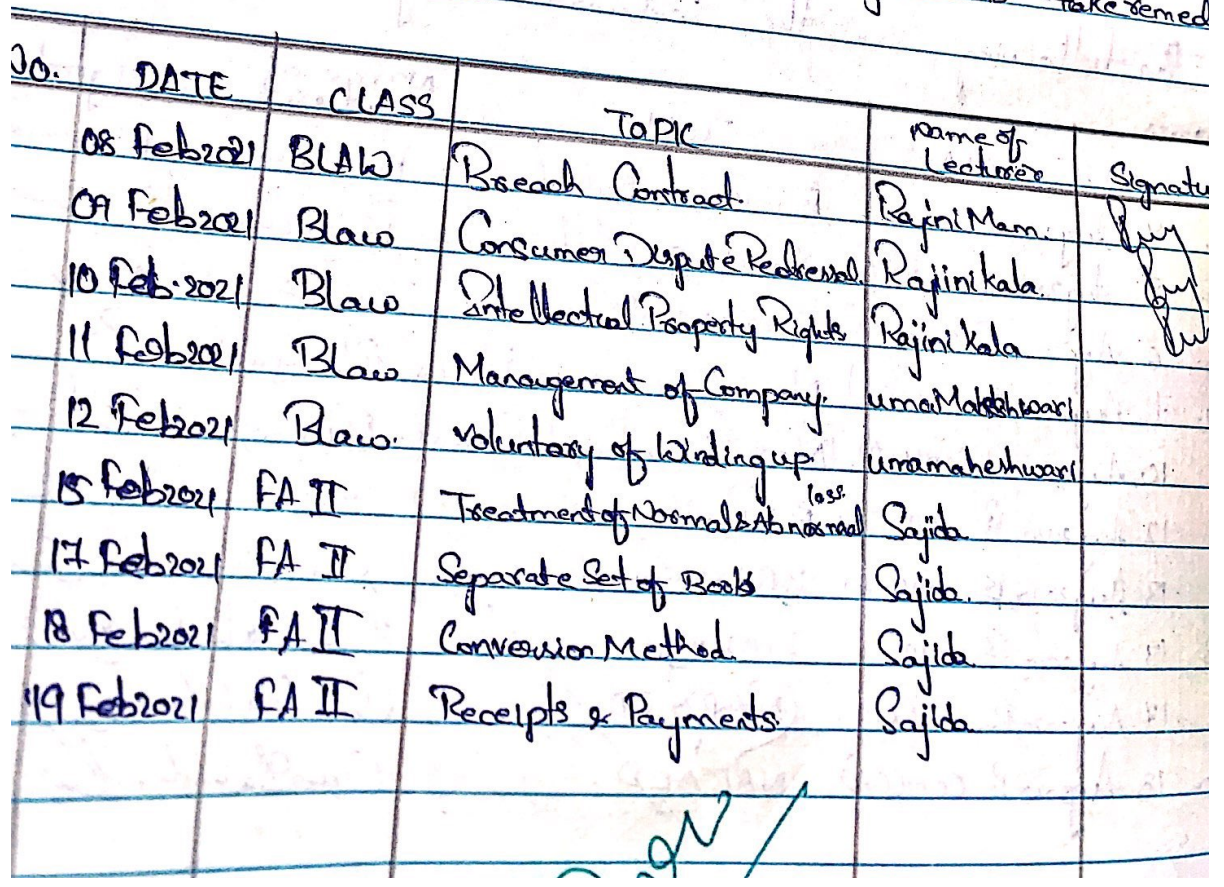 take remed
No. DATE CLASS TOPIC Name of Lecturer Signatu
08 Feb 2021 BLAW Breach Contract. Rajini Mam.
09 Feb 2021 Blaw Consumer Dispute Redressal. Rajinikala.
10 Feb. 2021 Blaw Intellectual Property Rights Rajini kala
11 Feb 2021 Blaw Management of Company.
12 Feb 2021 Blaw. voluntary of Winding up umamaheshwari
15 Feb 2021 FA II Treatment of Normal & Abnormal loss. Sajida
17 Feb 2021 FA II Separate Set of Books Sajida.
18 Feb 2021 FA II Conversion Method. Sajida
19 Feb 2021 FA II Receipts & Payments. Sajida